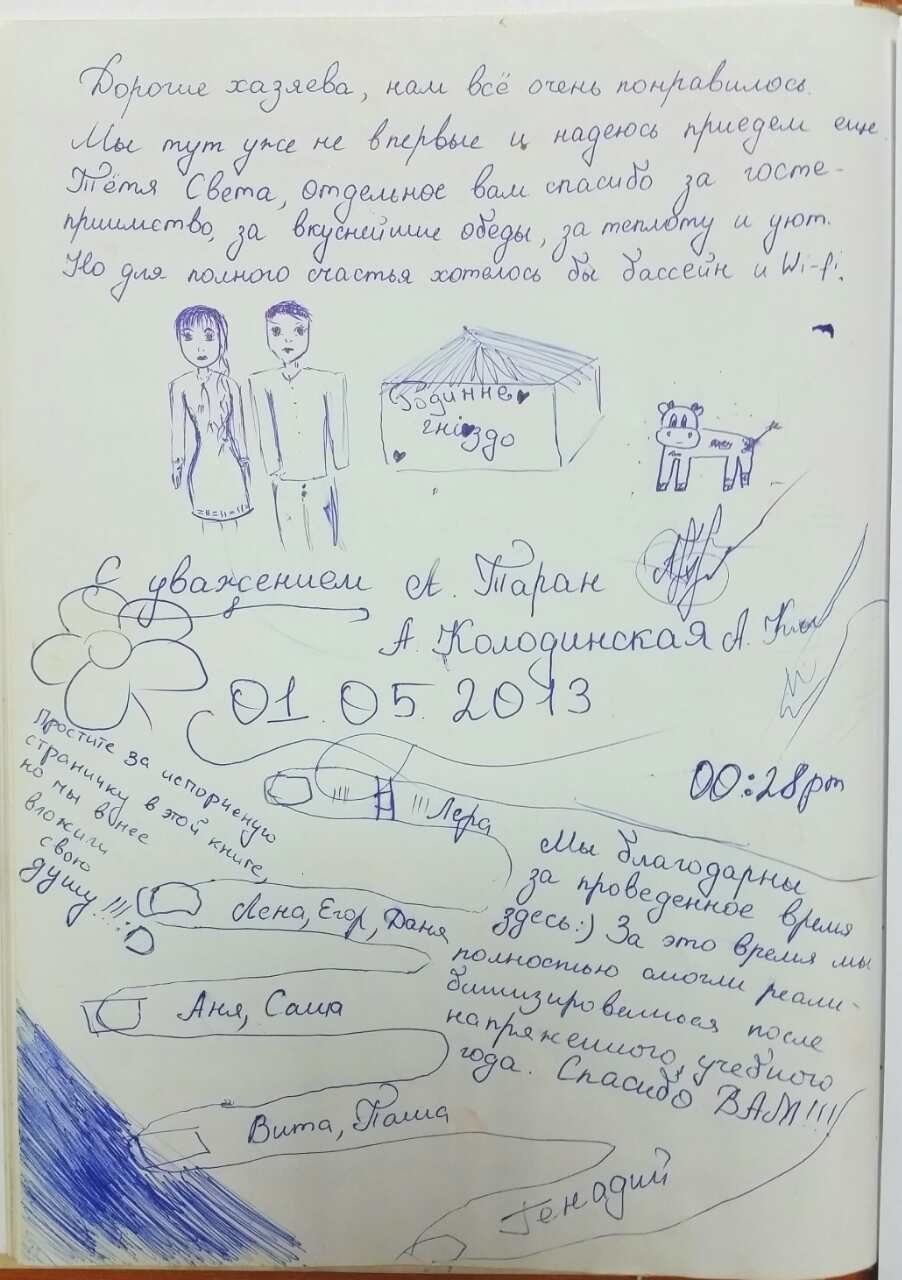 Дорогие хазяева, нам всё очень понравилось.
Мы тут уже не впервые и надеюсь приедем еще.
Тётя Света, отдельное вам спасибо за госте-
приимство, за вкуснейшие обеды, за теплоту и уют.
Но для полного счастья хотелось бы бассейн и Wi-fi.
Родинне
гніздо
С уважением А. Таран
А. Колодинская А.
01.05.2013
00:28pm
Простите за испорченую
страничку в этой книге,
но мы в нее
вложили
свою
душу!!!
Лера
Лена, Егор, Даня
Аня, Саша
Вита, Паша
Генадий
Мы благодарны
за проведенное время
здесь:) За это время мы
полностью смогли реали-
билизироваться после
напряженного учебного
года. Спасибо ВАМ!!!